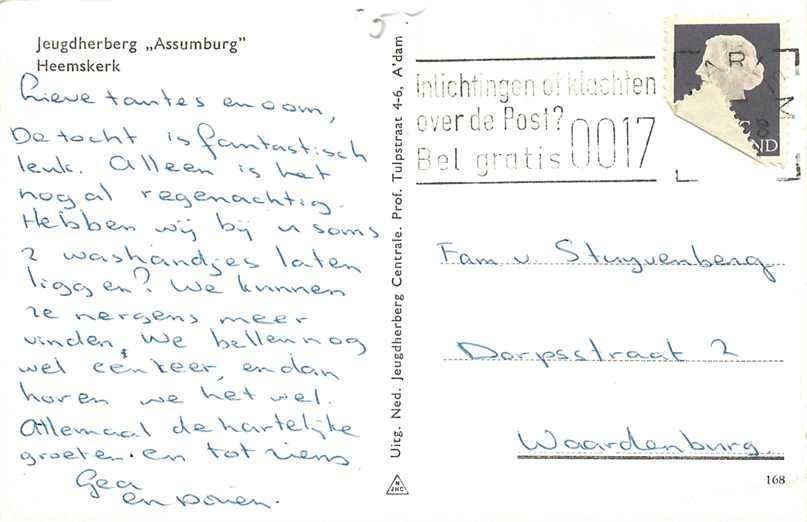 5-
Jeugdherberg „Assumburg”
Heemskerk
Lieve tantes en oom,
De tocht is fantastisch
leuk. Alleen is het
nogal regenachtig.
Hebben wij bij u soms
2 washandjes laten
liggen? We kunnen
ze nergens meer
vinden. We bellen nog
wel een keer, en dan
horen we het wel.
Allemaal de hartelijke
groeten en tot ziens
Gea
en
Uitg. Ned. Jeugdherberg Centrale. Prof. Tulpstraat 4-6, A'dam
N
JHC
Inlichtingen of klachten
over de Post?
Bel gratis 0017
Fam. v. Stuyvenberg
Dorpsstraat 2
Waardenburg.
168